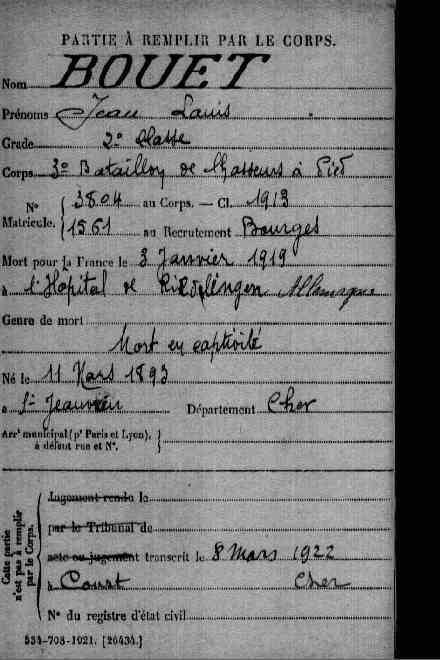 PARTIE À REMPLIR PAR LE CORPS.
Nom BOUET
Prénoms Jean Louis
Grade 2e Classe
Corps 3e Bataillon de Chasseurs à Pied
N° Matricule. { 3804 au Corps. — Cl. 1913
1561 au Recrutement Bourges
Mort pour la France le 3 Janvier 1919
à l'Hôpital de Allemagne
Genre de mort
Mort en captivité
Né le 11 Mars 1893
à St Département Cher
Arrt municipal (pr Paris et Lyon), à défaut rue et N°. }
Cette partie n'est pas à remplir par le Corps.
Jugement rendu le
par le Tribunal de
acte ou jugement transcrit le 8 Mars 1922
à Cher
N° du registre d'état civil
534-708-1921. [26434.]